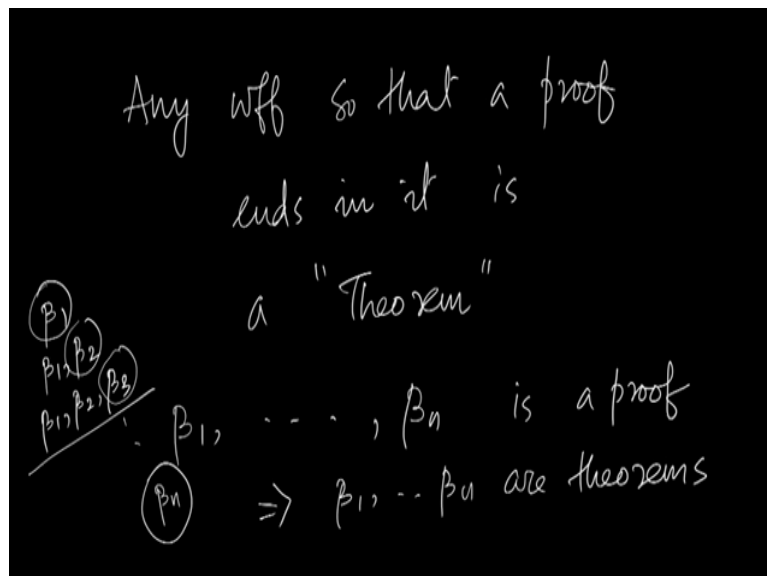 Any wff so that a proof
ends in it is
a "Theorem"
β1
β1, β2
β1, β2, β3
β1, - - - ·, βn is a proof
βn ⇒ β1, -- βn are theorems